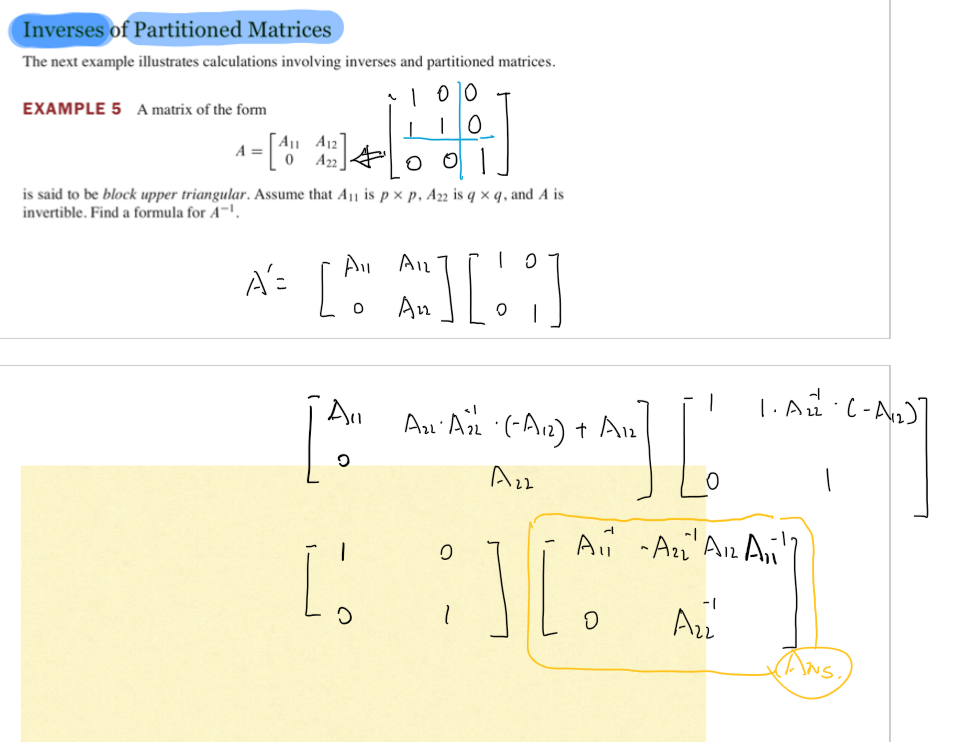 Inverses of Partitioned Matrices
The next example illustrates calculations involving inverses and partitioned matrices.
EXAMPLE 5 A matrix of the form
A = [A₁₁ A₁₂
0 A₂₂]
[1 0 0
1 1 0
0 0 1]
is said to be block upper triangular. Assume that A₁₁ is p × p, A₂₂ is q × q, and A is
invertible. Find a formula for A⁻¹.
A' = [A₁₁ A₁₂ [1 0
0 A₂₂] 0 1]
[A₁₁ A₂₂·A₂₂⁻¹·(-A₁₂) + A₁₂ [1 1·A₂₂⁻¹·(-A₁₂)
0 A₂₂] 0 1]
[1 0 [A₁₁⁻¹ -A₂₂⁻¹A₁₂A₁₁⁻¹
0 1] 0 A₂₂⁻¹]
Ans.